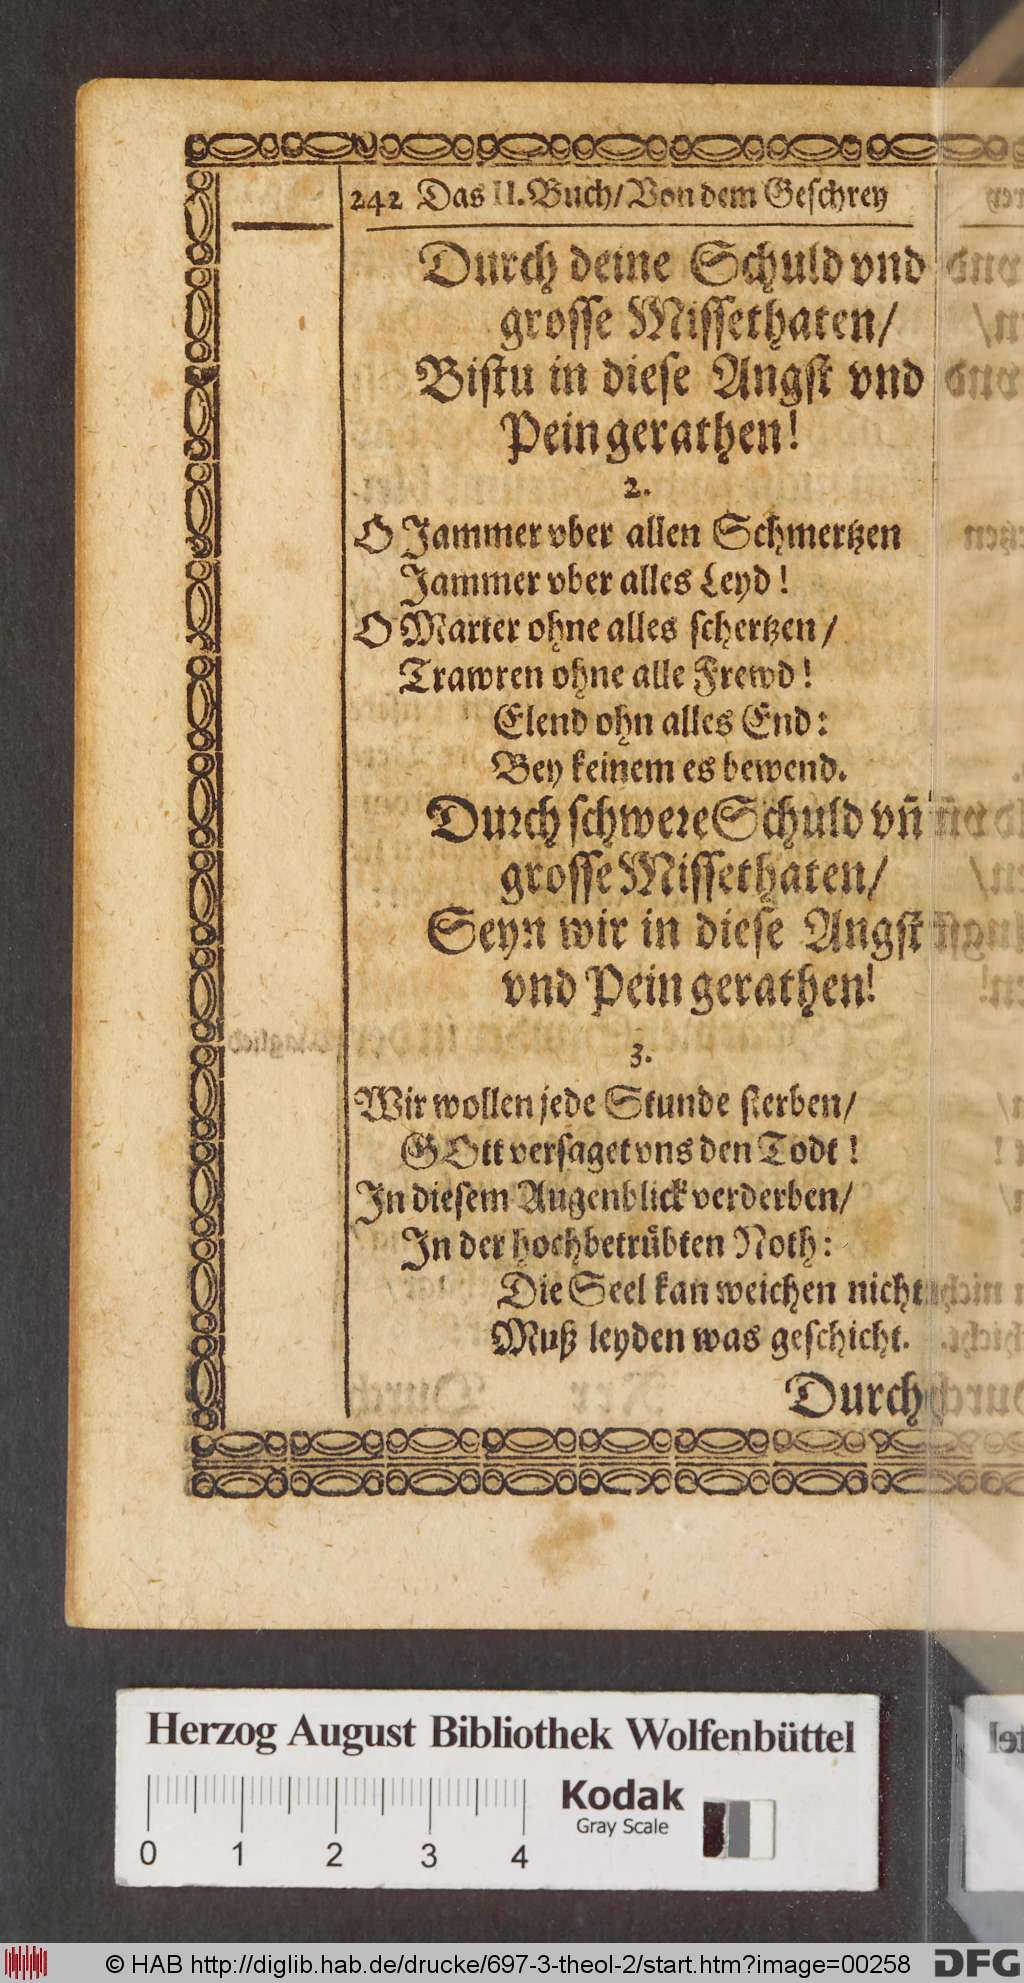 242 Das II. Buch/ Von dem Geschrey
Durch deine Schuld vnd
grosse Missethaten/
Bistu in diese Angst vnd
Pein gerathen!
2.
O Jammer vber allen Schmertzen
Jammer vber alles Leyd!
O Marter ohne alles schertzen/
Trawren ohne alle Frewd!
Elend ohn alles End:
Bey keinem es bewend.
Durch schwere Schuld vn̄
grosse Missethaten/
Seyn wir in diese Angst
vnd Pein gerathen!
3.
Wir wollen jede Stunde sterben/
GOtt versaget vns den Todt!
In diesem Augenblick verderben/
In der hochbetrůbten Noth:
Die Seel kan weichen nicht
Muß leyden was geschicht.
Durch
Herzog August Bibliothek Wolfenbüttel
Kodak
Gray Scale
0 1 2 3 4
© HAB http://diglib.hab.de/drucke/697-3-theol-2/start.htm?image=00258
DFG